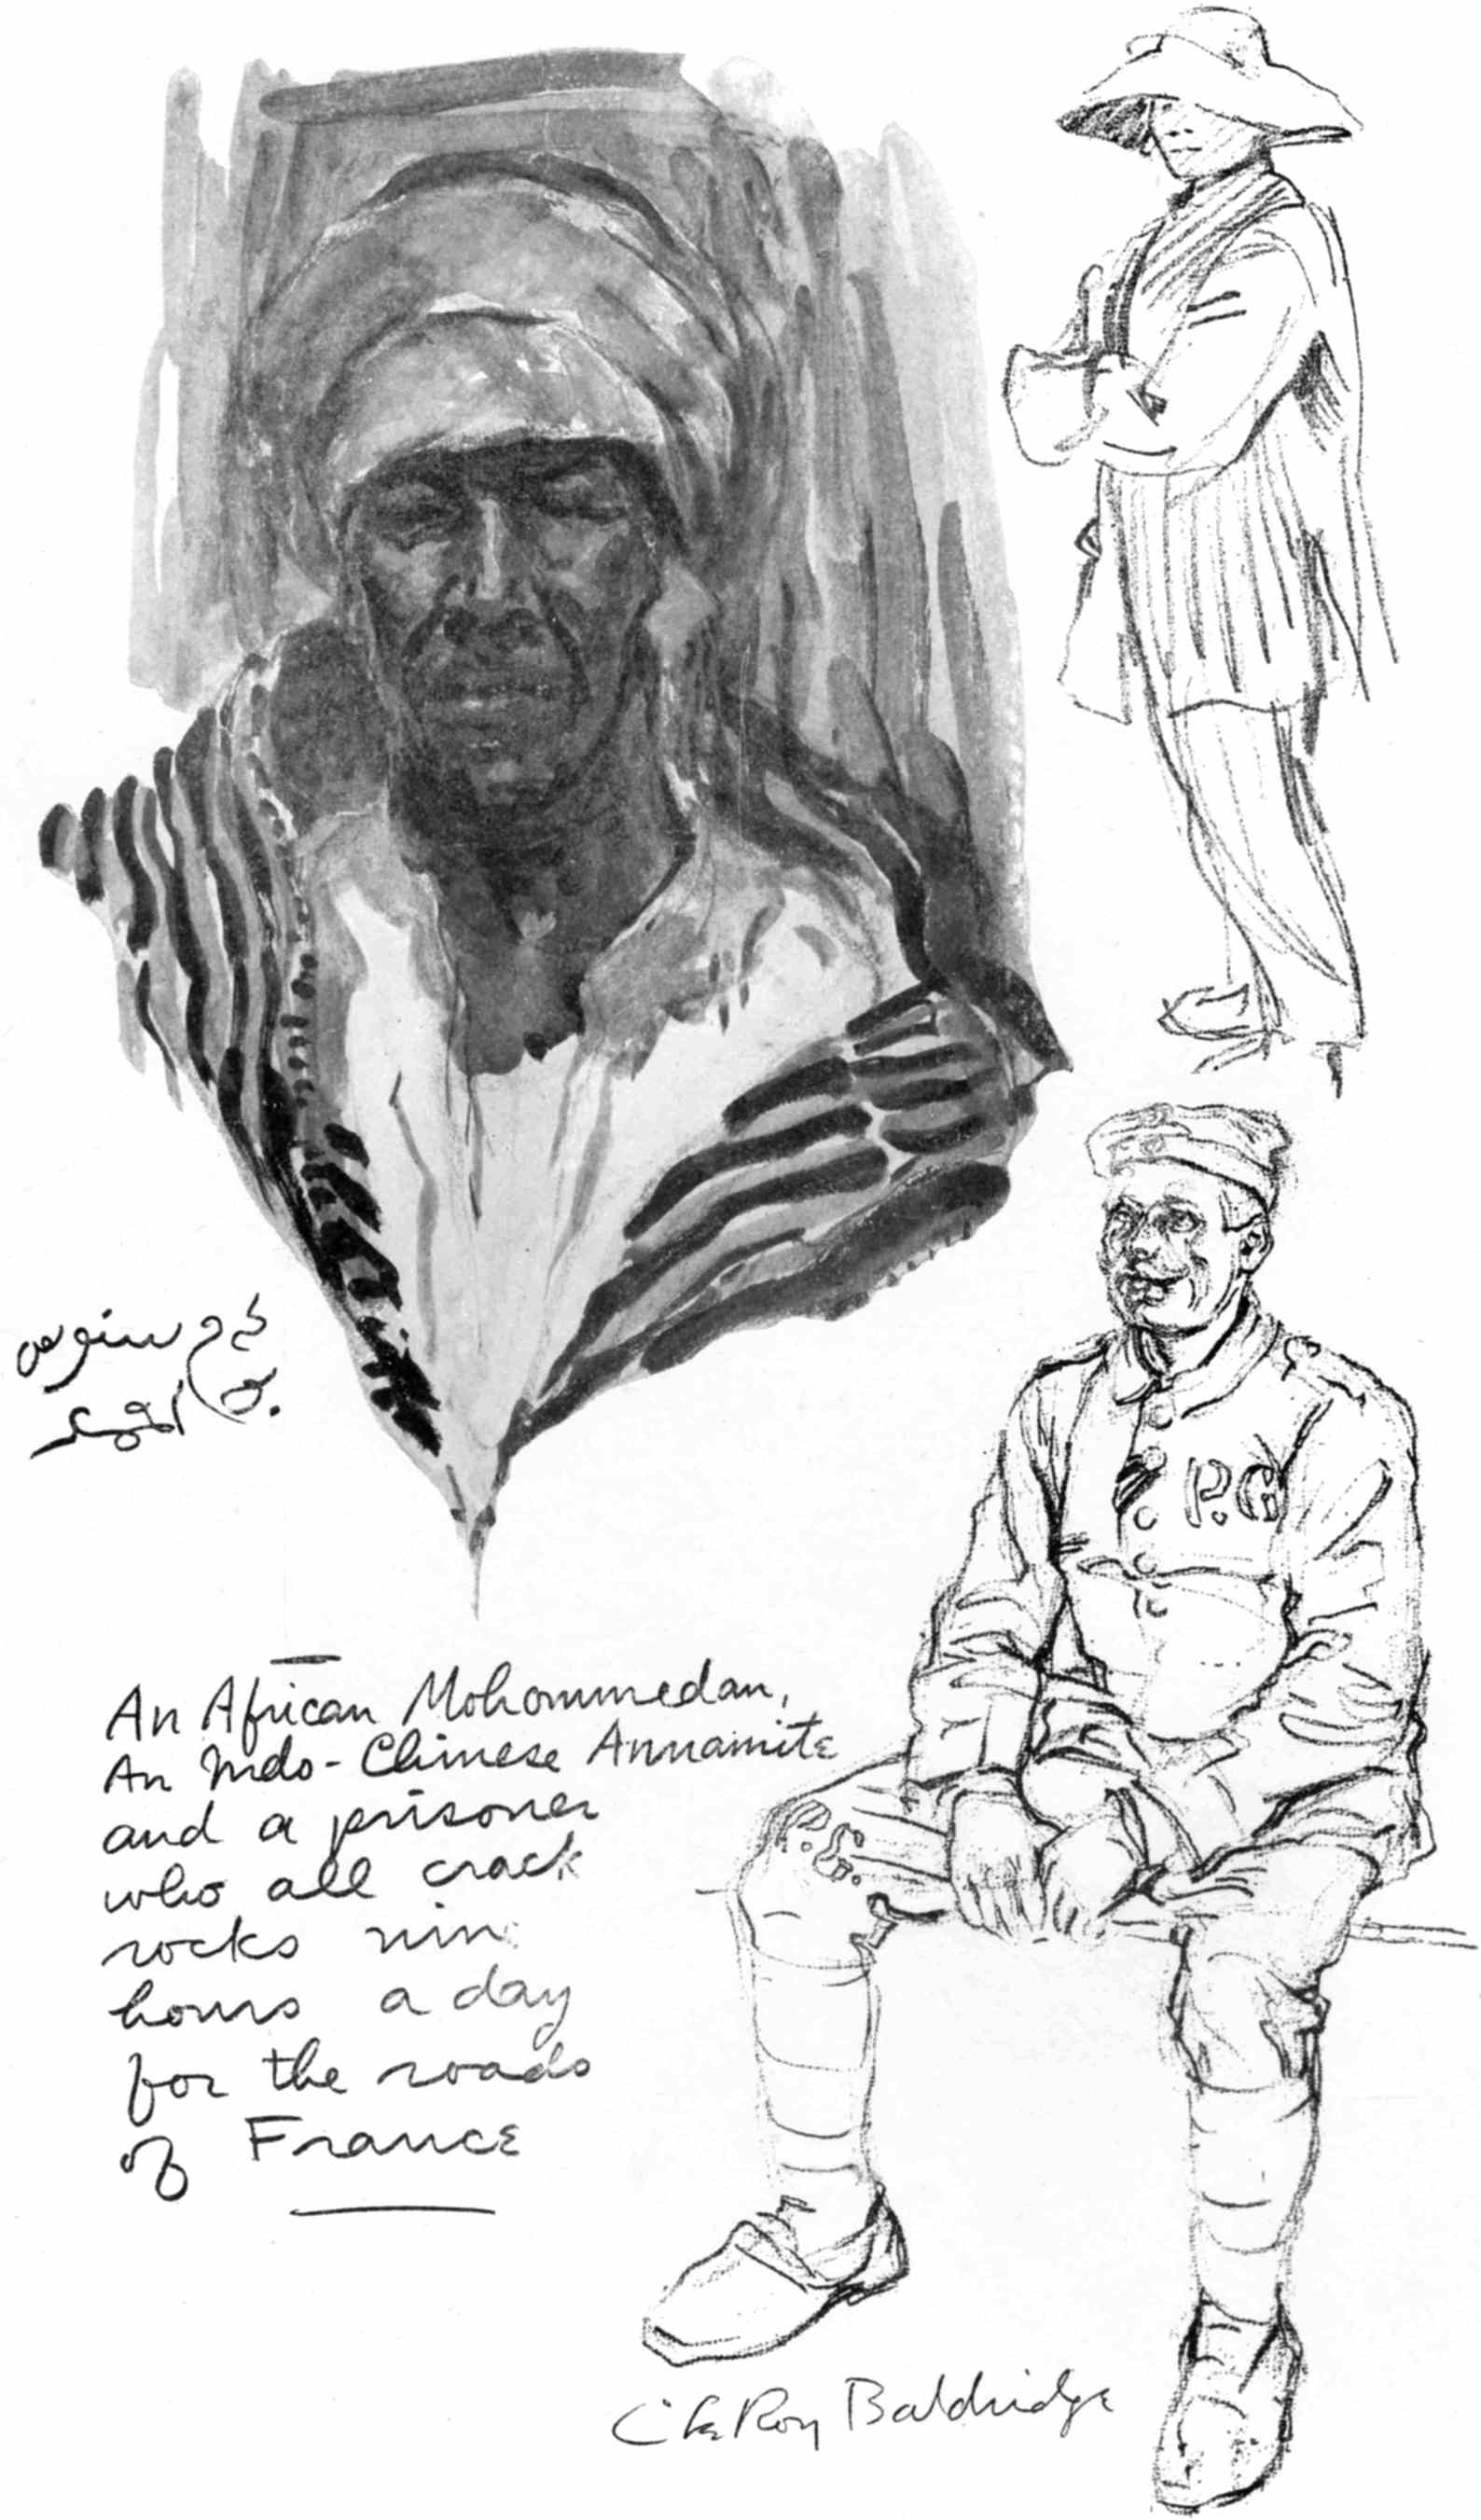 P.G
An African Mohommedan,
An Indo-Chinese Annamite
and a prisoner
who all crack
rocks nine
hours a day
for the roads
of France
C. LeRoy Baldridge